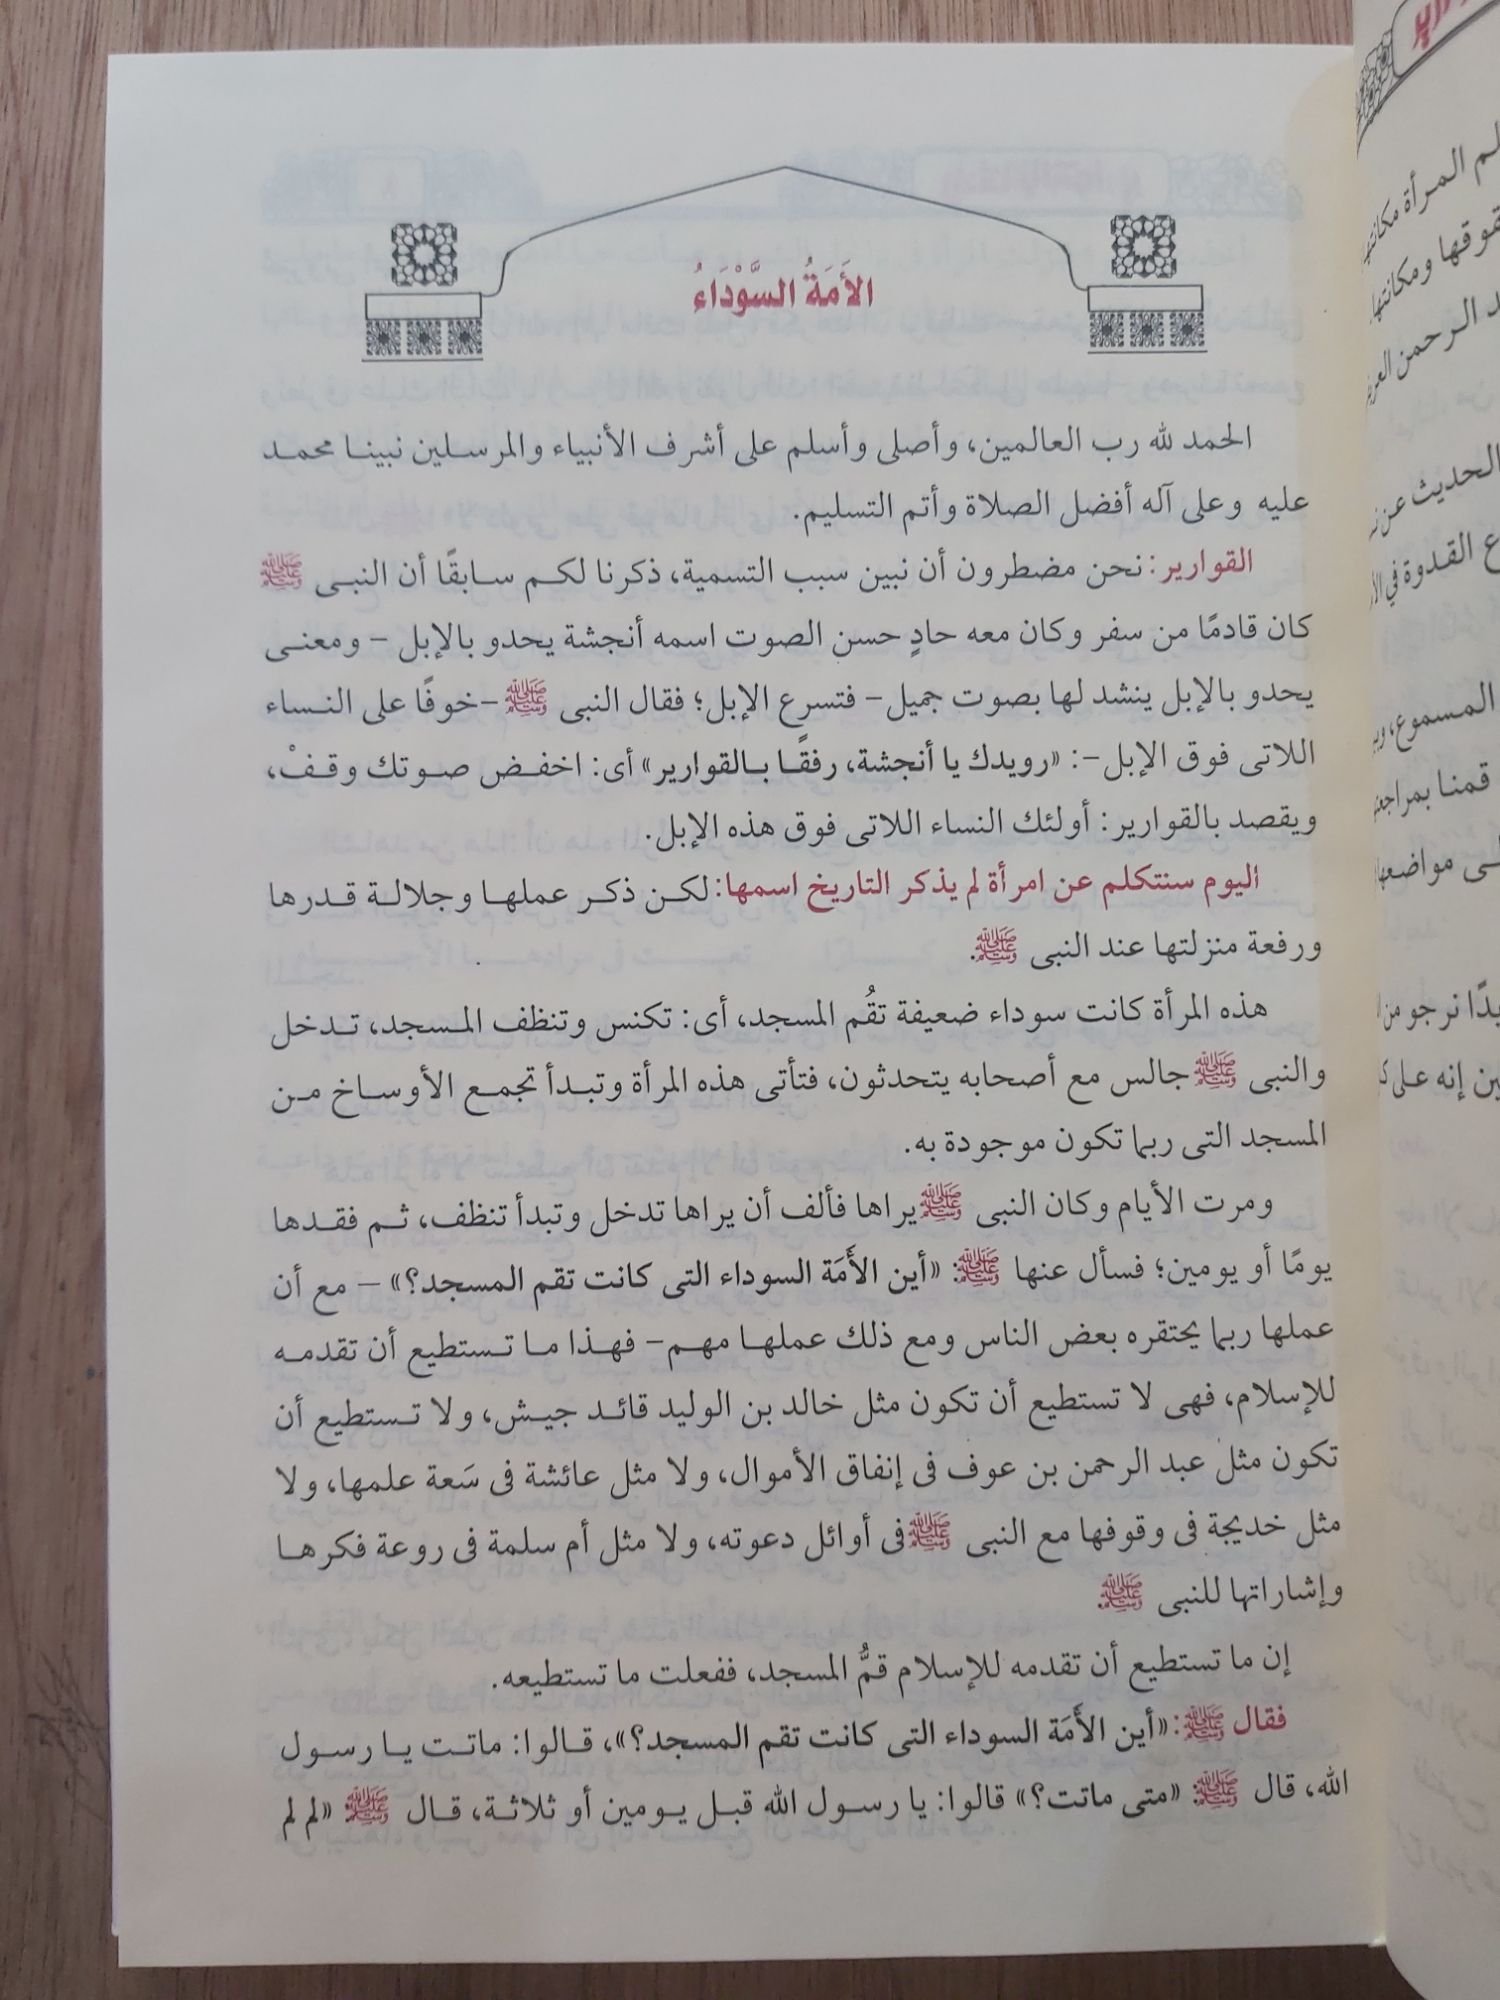 الأَمَةُ السَّوْدَاءُ
الحمد لله رب العالمين، وأصلى وأسلم على أشرف الأنبياء والمرسلين نبينا محمد
عليه وعلى آله أفضل الصلاة وأتم التسليم.
القوارير: نحن مضطرون أن نبين سبب التسمية، ذكرنا لكم سابقًا أن النبى ﷺ
كان قادمًا من سفر وكان معه حادٍ حسن الصوت اسمه أنجشة يحدو بالإبل – ومعنى
يحدو بالإبل ينشد لها بصوت جميل– فتسرع الإبل؛ فقال النبى ﷺ –خوفًا على النساء
اللاتى فوق الإبل–: «رويدك يا أنجشة، رفقًا بالقوارير» أى: اخفض صوتك وقفْ،
ويقصد بالقوارير: أولئك النساء اللاتى فوق هذه الإبل.
اليوم سنتكلم عن امرأة لم يذكر التاريخ اسمها: لكن ذكر عملها وجلالة قدرها
ورفعة منزلتها عند النبى ﷺ.
هذه المرأة كانت سوداء ضعيفة تقُم المسجد، أى: تكنس وتنظف المسجد، تدخل
والنبى ﷺ جالس مع أصحابه يتحدثون، فتأتى هذه المرأة وتبدأ تجمع الأوساخ من
المسجد التى ربما تكون موجودة به.
ومرت الأيام وكان النبى ﷺ يراها فألف أن يراها تدخل وتبدأ تنظف، ثم فقدها
يومًا أو يومين؛ فسأل عنها ﷺ: «أين الأَمَة السوداء التى كانت تقم المسجد؟» – مع أن
عملها ربما يحتقره بعض الناس ومع ذلك عملها مهم– فهذا ما تستطيع أن تقدمه
للإسلام، فهى لا تستطيع أن تكون مثل خالد بن الوليد قائد جيش، ولا تستطيع أن
تكون مثل عبد الرحمن بن عوف فى إنفاق الأموال، ولا مثل عائشة فى سَعة علمها، ولا
مثل خديجة فى وقوفها مع النبى ﷺ فى أوائل دعوته، ولا مثل أم سلمة فى روعة فكرها
وإشاراتها للنبى ﷺ.
إن ما تستطيع أن تقدمه للإسلام قمُّ المسجد، ففعلت ما تستطيعه.
فقال ﷺ: «أين الأَمَة السوداء التى كانت تقم المسجد؟»، قالوا: ماتت يا رسول
الله، قال ﷺ: «متى ماتت؟» قالوا: يا رسول الله قبل يومين أو ثلاثة، قال ﷺ: «لم لم
لم المرأة مكانتها
قوقها ومكانتها
د الرحمن
الحديث عن
ع القدوة في
المسموع،
قمنا
لى مواضعها
دًا نرجو من
ين إنه على